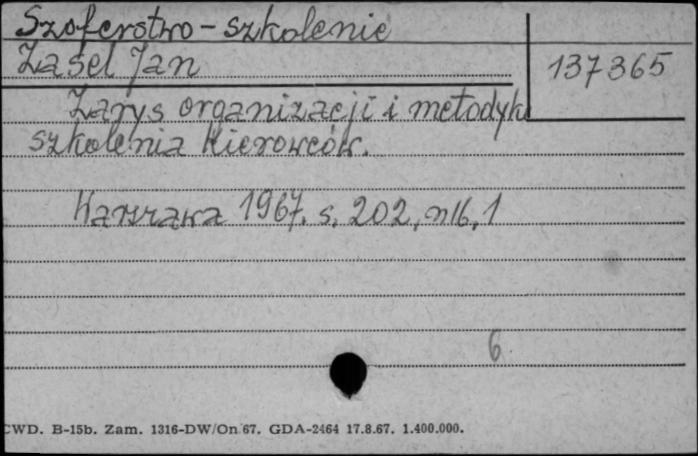 Szoferstwo - szkolenie
Zasel Jan
137365
Zarys organizacji i metodyki
szkolenia kierowców.
Warszawa 1967. s. 202, nlb, 1
6
CWD. B-15b. Zam. 1316-DW/On 67. GDA-2464 17.8.67. 1.400.000.